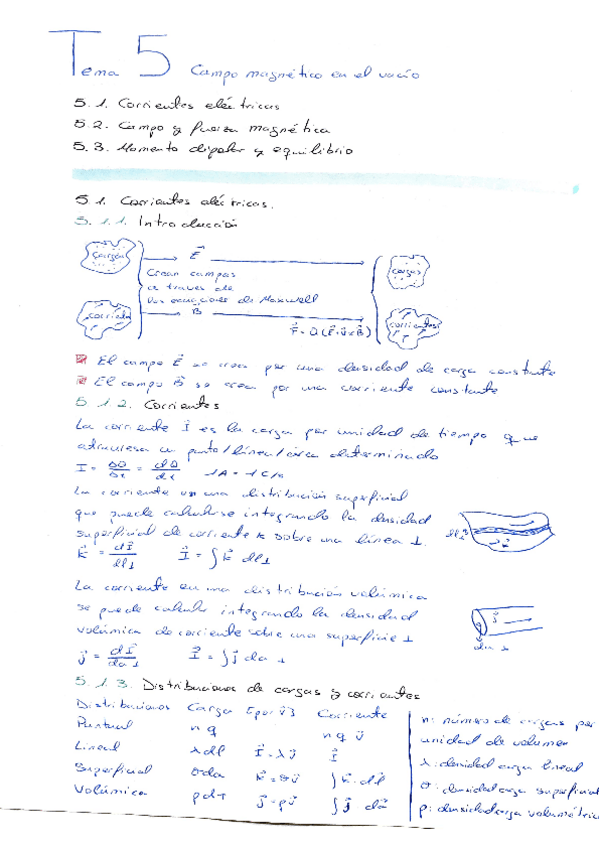 Tema 5 Campo magnético en el vacío
5.1. Corrientes eléctricas
5.2. Campo y fuerza magnética
5.3. Momento dipolar y equilibrio
5.1. Corrientes eléctricas.
5.1.1. Introducción
cargas E⃗ cargas
Crean campos
a través de
las ecuaciones de Maxwell
corriente B⃗ corrientes
F⃗ = Q(E⃗+v⃗×B⃗)
El campo E⃗ se crea por una densidad de carga constante
El campo B⃗ se crea por una corriente constante
5.1.2. Corrientes
La corriente I⃗ es la carga por unidad de tiempo que
atraviesa un punto/línea/área determinado
I = ΔQ/Δt = dQ/dt 1A = 1C/s
La corriente en una distribución superficial
que puede calcularse integrando la densidad
superficial de corriente k sobre una línea ⊥.
k⃗ = dI⃗/dl⊥ I⃗ = ∫ k⃗ dl⊥
La corriente en una distribución volúmica
se puede calcular integrando la densidad
volúmica de corriente sobre una superficie ⊥
j⃗ = dI⃗/da⊥ I⃗ = ∫ j⃗ da⊥
5.1.3. Distribuciones de cargas y corrientes
Distribuciones Carga [por v⃗] Corriente
Puntual nq nq v⃗
Lineal λdl I⃗=λv⃗ I⃗
Superficial σda k⃗=σv⃗ ∫k⃗·dl⃗
Volúmica ρdτ j⃗=ρv⃗ ∫j⃗ da⃗
n: número de cargas por
unidad de volumen
λ: densidad carga lineal
σ: densidad carga superficial
ρ: densidad carga volumétrica